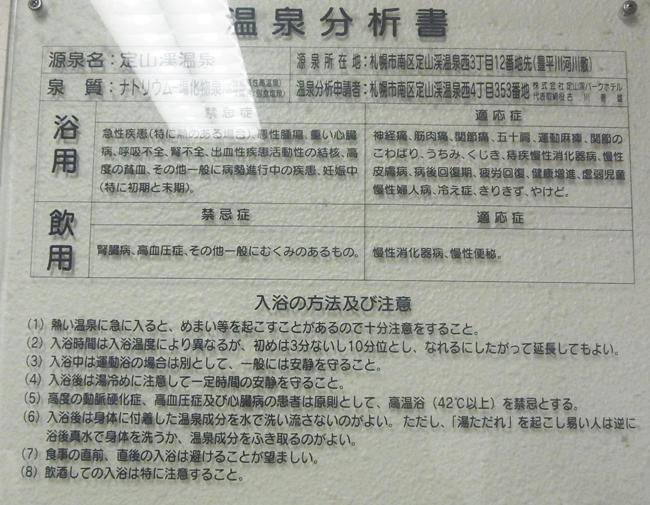 温泉分析書
源泉名：定山渓温泉 源泉所在地：札幌市南区定山渓温泉西3丁目12番地先(豊平川河川敷)
泉質：ナトリウム－塩化物泉 温泉分析申請者：札幌市南区定山渓温泉西4丁目353番地 株式会社 定山渓パークホテル
代表取締役 古川
浴用
禁忌症
急性疾患(特に熱のある場合)、悪性腫瘍、重い心臓
病、呼吸不全、腎不全、出血性疾患活動性の結核、高
度の貧血、その他一般に病勢進行中の疾患、妊娠中
(特に初期と末期)。
適応症
神経痛、筋肉痛、関節痛、五十肩、運動麻痺、関節の
こわばり、うちみ、くじき、痔疾慢性消化器病、慢性
皮膚病、病後回復期、疲労回復、健康増進、虚弱児童
慢性婦人病、冷え症、きりきず、やけど。
飲用
禁忌症
腎臓病、高血圧症、その他一般にむくみのあるもの。
適応症
慢性消化器病、慢性便秘。
入浴の方法及び注意
(1) 熱い温泉に急に入ると、めまい等を起こすことがあるので十分注意をすること。
(2) 入浴時間は入浴温度により異なるが、初めは3分ないし10分位とし、なれるにしたがって延長してもよい。
(3) 入浴中は運動浴の場合は別として、一般には安静を守ること。
(4) 入浴後は湯冷めに注意して一定時間の安静を守ること。
(5) 高度の動脈硬化症、高血圧症及び心臓病の患者は原則として、高温浴（42℃以上）を禁忌とする。
(6) 入浴後は身体に付着した温泉成分を水で洗い流さないのがよい。ただし、「湯ただれ」を起こし易い人は逆に
浴後真水で身体を洗うか、温泉成分をふき取るのがよい。
(7) 食事の直前、直後の入浴は避けることが望ましい。
(8) 飲酒しての入浴は特に注意すること。